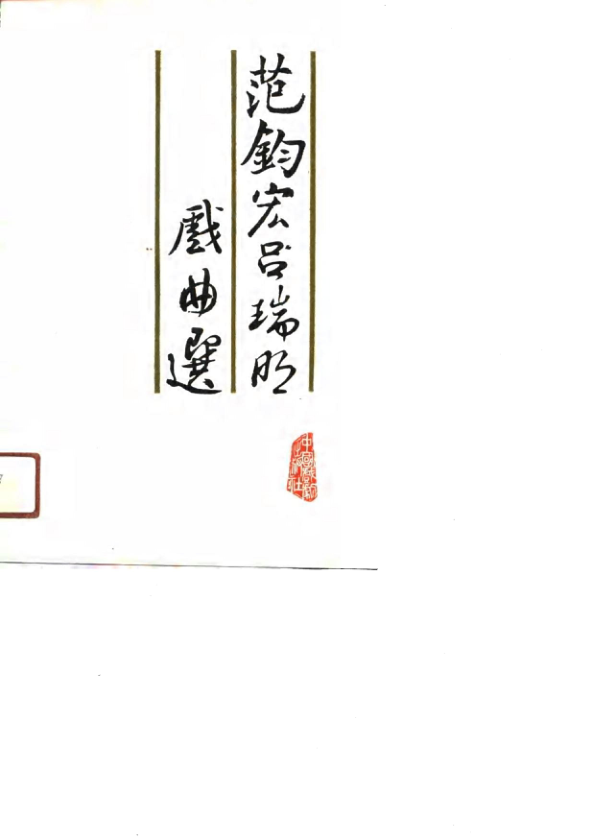 范鈞宏吕瑞明
戲曲選
中國戲劇
出版社